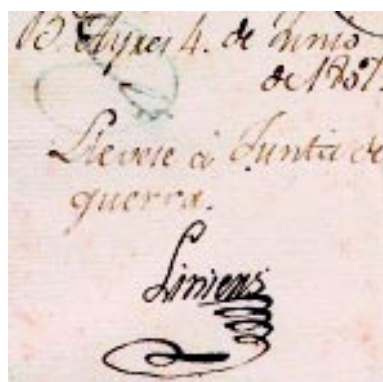 B. Ayres 4. de Junio
de 1807.
Llevese á Junta de
guerra.
Liniers